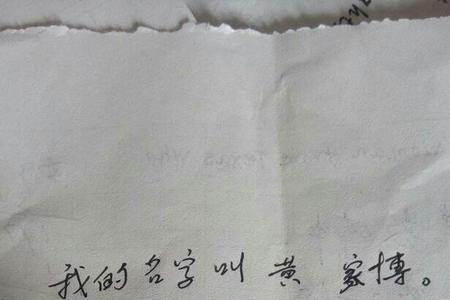 我的名字叫黄 家博。